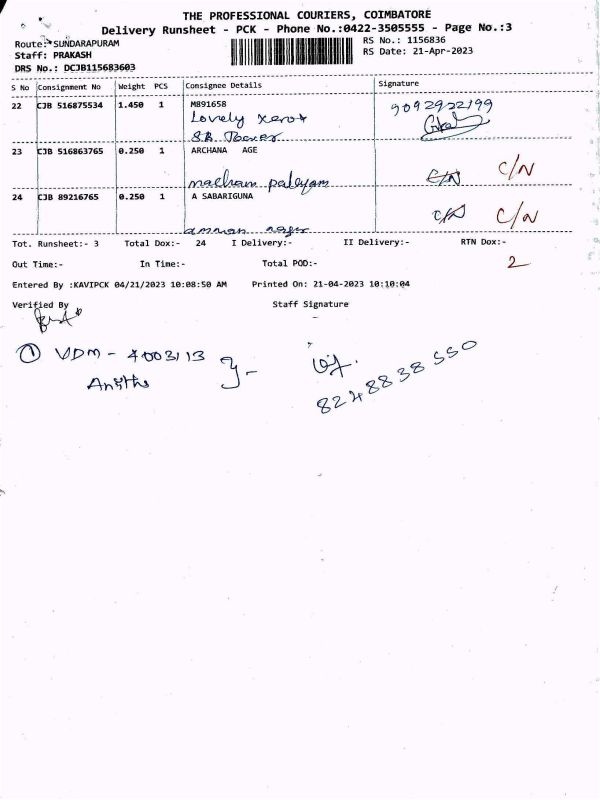 THE PROFESSIONAL COURIERS, COIMBATORE
Delivery Runsheet - PCK - Phone No.:0422-3505555 - Page No.:3
Route: SUNDARAPURAM
RS No.: 1156836
Staff: PRAKASH
RS Date: 21-Apr-2023
DRS No.: DCJB115683603
S No Consignment No Weight PCS Consignee Details Signature
22 CJB 516875534 1.450 1 M891658
9092922199
Lovely Xerox
S.B. Tower
23 CJB 516863765 0.250 1 ARCHANA AGE
C/N C/N
macham palayam
24 CJB 89216765 0.250 1 A SABARIGUNA
C/N C/N
amman nager
Tot. Runsheet:- 3 Total Dox:- 24 I Delivery:- II Delivery:- RTN Dox:-
2
Out Time:- In Time:- Total POD:-
Entered By :KAVIPCK 04/21/2023 10:08:50 AM Printed On: 21-04-2023 10:10:04
Verified By Staff Signature
① VDM - 4003113
8248838550